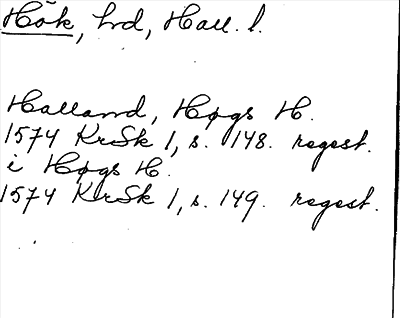 Hök, hrd, Hall. l.
Halland, Høgs H.
1574 KrSk 1, s. 148. regest.
i Høgs H.
1574 KrSk 1, s. 149. regest.